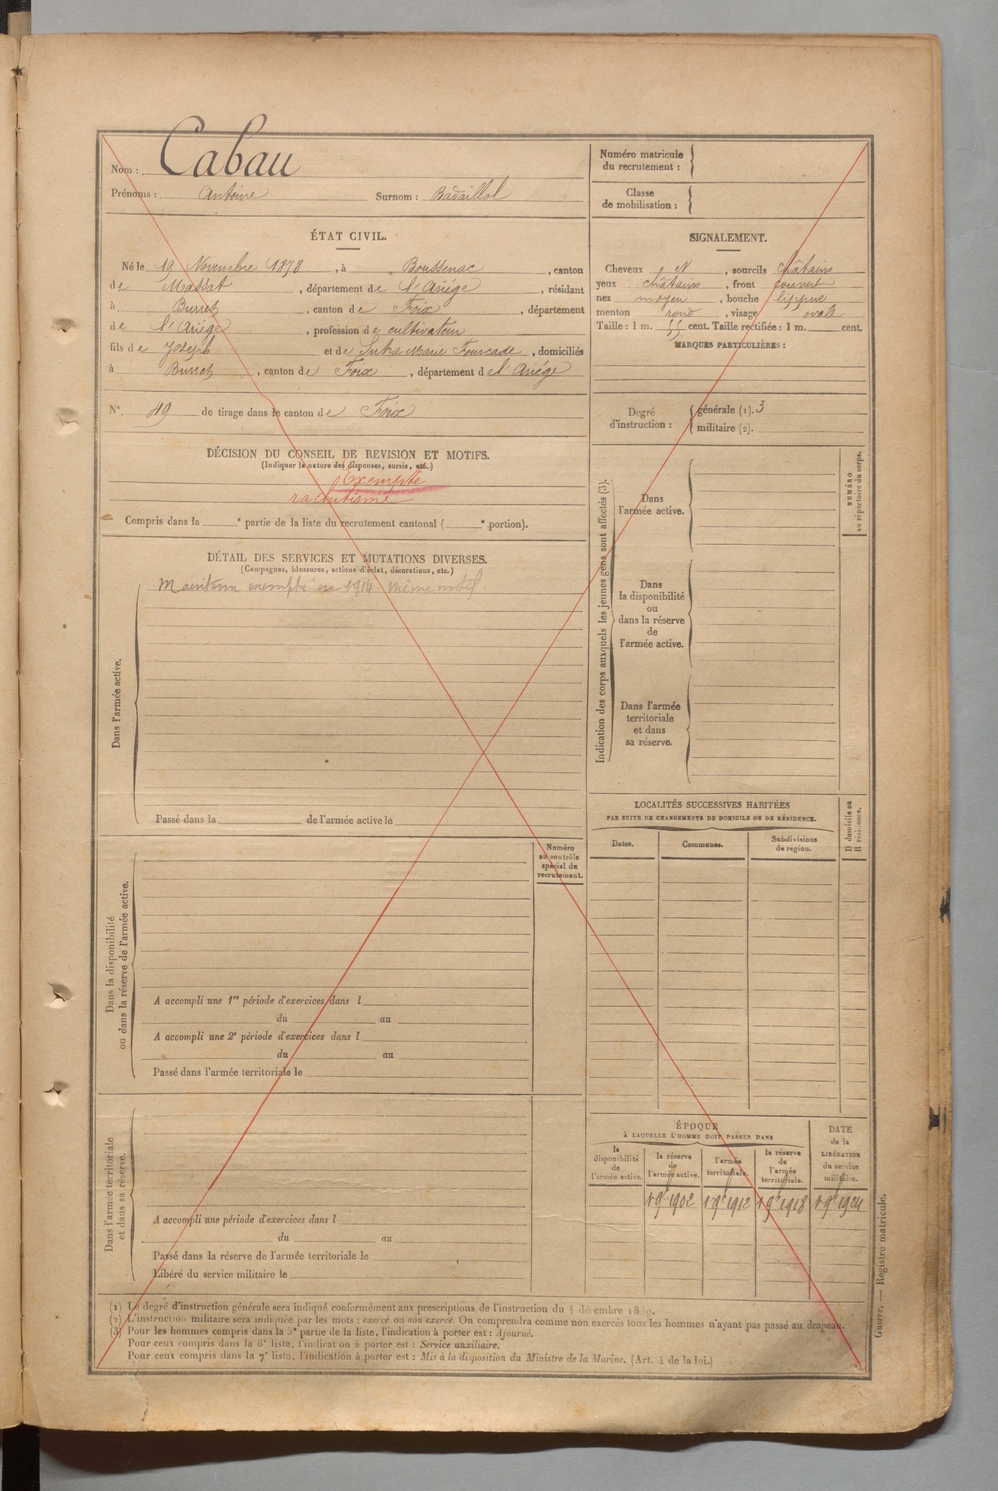 Nom : Cabau
Prénoms : Antoine Surnom : Badaillol
ÉTAT CIVIL.
Né le 19 Novembre 1878, à Boussenac, canton
de Massat, département de l'Ariége, résidant
à Burret, canton de Foix, département
de l'Ariége, profession de cultivateur
fils de Joseph et de Marie Fourcade, domiciliés
à Burret, canton de Foix, département de l'Ariége
N° 49 de tirage dans le canton de Foix
DÉCISION DU CONSEIL DE REVISION ET MOTIFS.
(Indiquer la nature des dispenses, sursis, etc.)
Exempté
rachitisme
Compris dans la ______e partie de la liste du recrutement cantonal (______e portion).
DÉTAIL DES SERVICES ET MUTATIONS DIVERSES.
(Campagnes, blessures, actions d'éclat, décorations, etc.)
Maintenu exempté en 1914 même motif
Dans l'armée active.
Passé dans la ______ de l'armée active le
Dans la disponibilité
ou dans la réserve de l'armée active.
Numéro
au contrôle
spécial du
recrutement.
A accompli une 1re période d'exercices dans l
du ______ au
A accompli une 2e période d'exercices dans l
du ______ au
Passé dans l'armée territoriale le
Dans l'armée territoriale
et dans sa réserve.
A accompli une période d'exercices dans l
du ______ au
Passé dans la réserve de l'armée territoriale le
Libéré du service militaire le
Numéro matricule
du recrutement :
Classe
de mobilisation :
SIGNALEMENT.
Cheveux N, sourcils châtains
yeux châtains, front couvert
nez moyen, bouche lippue
menton rond, visage ovale
Taille : 1 m. 55 cent. Taille rectifiée : 1 m. ______ cent.
MARQUES PARTICULIÈRES :
Degré
d'instruction :
générale (1). 3
militaire (2).
Indication des corps auxquels les jeunes gens sont affectés (3).
Dans
l'armée active.
Dans
la disponibilité
ou
dans la réserve
de
l'armée active.
Dans l'armée
territoriale
et dans
sa réserve.
NUMÉRO
au répertoire du corps.
LOCALITÉS SUCCESSIVES HABITÉES
PAR SUITE DE CHANGEMENTS DE DOMICILE OU DE RÉSIDENCE.
Dates. Communes. Subdivisions
de région.
D domicile ou
R résidence.
ÉPOQUE
À LAQUELLE L'HOMME DOIT PASSER DANS
la
disponibilité
de
l'armée active.
la réserve
de
l'armée active.
l'armée
territoriale.
la réserve
de
l'armée
territoriale.
DATE
de la
LIBÉRATION
du service
militaire.
1 9e 1902 1 9e 1912 1 9e 1918 1 9e 1924
(1) Le degré d'instruction générale sera indiqué conformément aux prescriptions de l'instruction du 4 décembre 1889.
(2) L'instruction militaire sera indiquée par les mots : exercé ou non exercé. On comprendra comme non exercés tous les hommes n'ayant pas passé au drapeau.
(3) Pour les hommes compris dans la 5e partie de la liste, l'indication à porter est : Ajourné.
Pour ceux compris dans la 6e liste, l'indication à porter est : Service auxiliaire.
Pour ceux compris dans la 7e liste, l'indication à porter est : Mis à la disposition du Ministre de la Marine. (Art. 4 de la loi.)
Guerre. — Registre matricule.